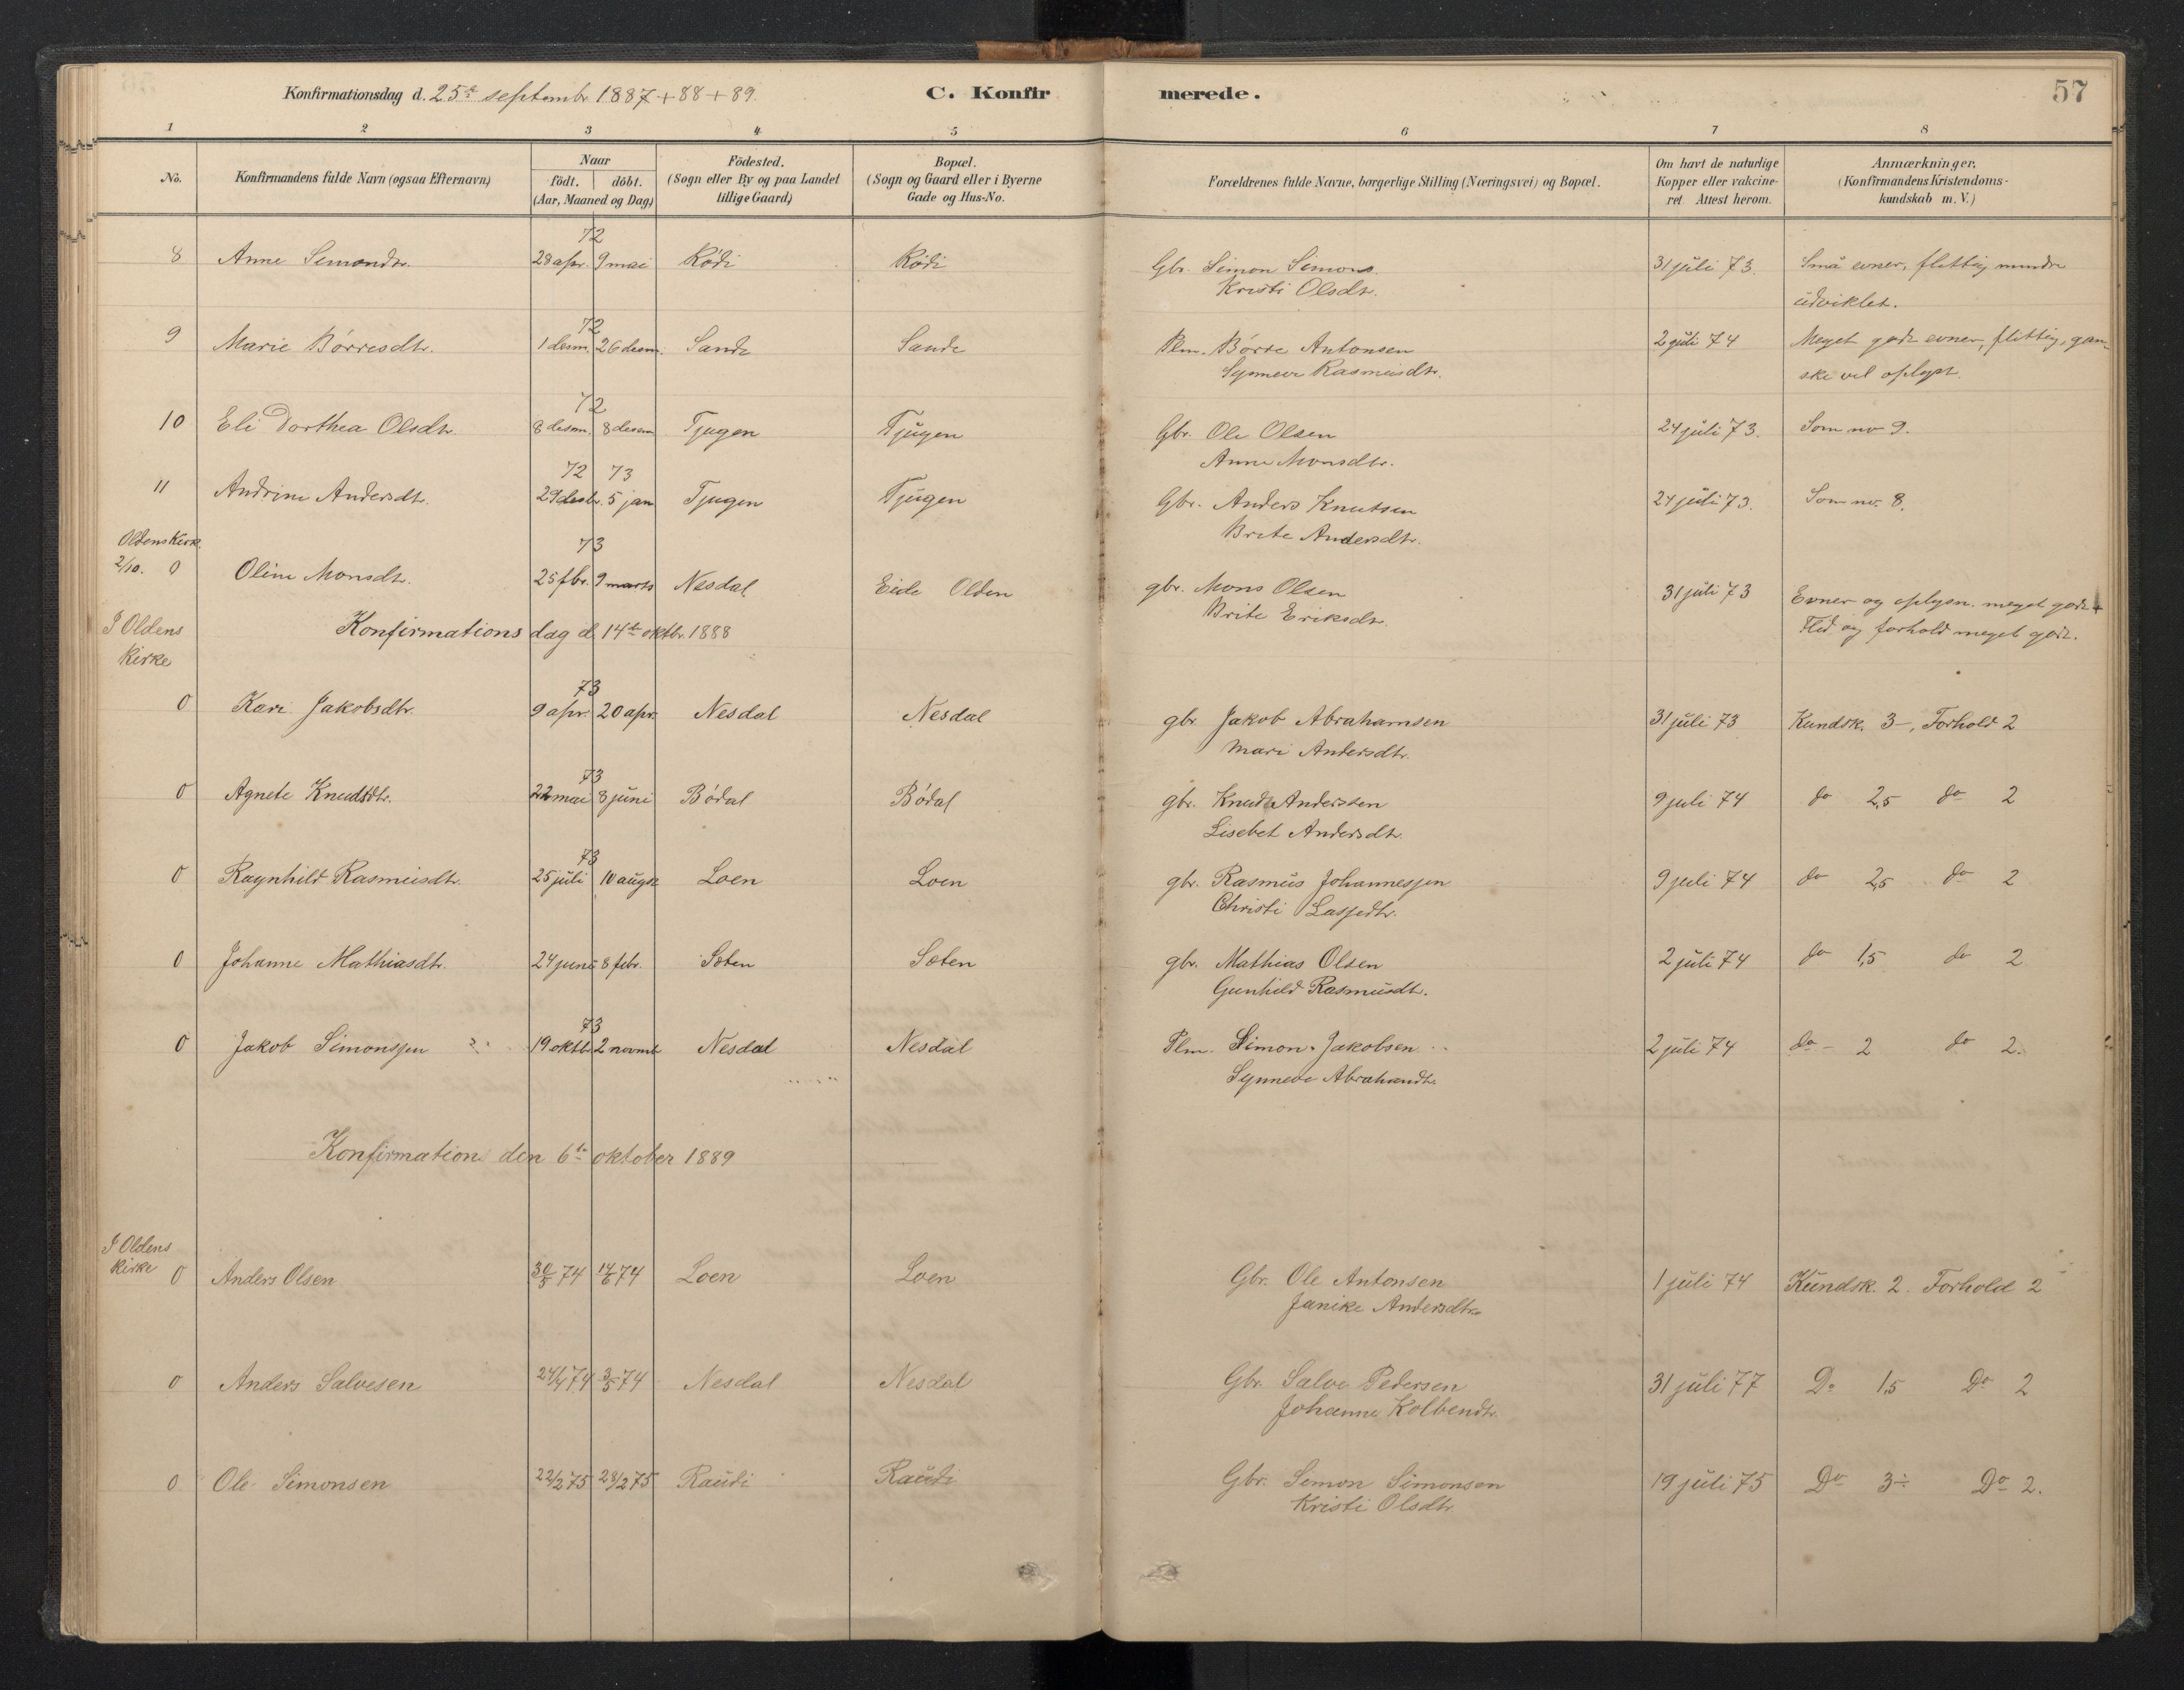 Konfirmationsdag d. 25de septembr 1887 + 88 + 89. C. Konfirmerede. 57
1 2 3 4 5 6 7 8
No. Konfirmandens fulde Navn (ogsaa Efternavn) Naar födt. döbt. (Aar, Maaned og Dag) Födested. (Sogn eller By og paa Landet tillige Gaard) Bopæl. (Sogn og Gaard eller i Byerne Gade og Hus-No. Forældrenes fulde Navne, borgerlige Stilling (Næringsvei) og Bopæl. Om havt de naturlige Kopper eller vakcineret Attest herom. Anmærkninger. (Konfirmandens Kristendomskundskab m. V.)
72
8 Anne Simondtr. 28 apr. 9 mai Rödi Rödi Gbr. Simon Simons. 31 juli 73. Små evner, flittig mindre
Kristi Olsdtr. udviklet.
72
9 Marie Börresdtr. 1 desm. 26 desm. Sande Sande Plm. Börre Antonsen 2 juli 74 Meget gode evner, flittig, gan-
Synneve Rasmusdtr. ske vel oplyst.
72
10 Eli Dorthea Olsdtr. 8 desm. 8 desem Tjugen Tjugen Gbr. Ole Olsen 24 juli 73. Som no 9.
Anne Monsdtr.
72 73
11 Andrine Andersdtr. 29 desbr. 5 jan Tjugen Tjugen Gbr. Anders Knutsen 24 juli 73. Som no. 8.
Brite Andersdtr.
Oldens Kirk. 73
2/10. 0 Oline Monsdtr. 25 fbr. 9 marts Nesdal Eide Olden gbr. Mons Olsen 31 juli 73 Evner og oplysn. meget gode +
Brite Eriksdtr. Flid og forhold meget godt.
I Oldens Kirke Konfirmationsdag d 14de oktbr. 1888
73
0 Kari Jakobsdtr. 9 apr. 20 apr. Nesdal Nesdal gbr. Jakob Abrahamsen 31 juli 73 Kundsk. 3-, Forhold 2
Mari Andersdtr.
73
0 Agnete Knudsdtr. 22 mai 8 juni Bödal Bödal gbr. Knud Anderssen 9 juli 74 do 2,5 do 2
Lisebet Andersdtr.
73
0 Ragnhild Rasmusdtr. 25 juli 10 augst Loen Loen gbr. Rasmus Johannessen 9 juli 74 do 2,5 do 2
Christi Lassedtr.
0 Johanne Mathiasdtr. 24 juni 8 febr. Sæten Sæten gbr. Mathias Olsen 2 juli 74 do 1,5 do 2
Gunhild Rasmusdtr.
73
0 Jakob Simonssen 19 oktbr 2 novmb Nesdal Nesdal Plm. Simon Jakobsen 2 juli 74 do - 2 do 2.
Synneve Abrahamdtr.
Konfirmation den 6te oktober 1889
I Oldens
Kirke 0 Anders Olsen 30/5 74 14/6 74 Loen Loen Gbr. Ole Antonsen 1 juli 74 Kundsk. 2. Forhold 2
Janike Andersdtr.
0 Anders Salvesen 24/4 74 3/5 74 Nesdal Nesdal Gbr. Salve Pedersen 31 juli 77 Do 1,5 Do 2
Johanne Kolbendtr.
0 Ole Simonsen 22/2 75 28/2 75 Raudi Raudi Gbr. Simon Simonsen 19 juli 75 Do 3÷ Do 2.
Kristi Olsdtr.